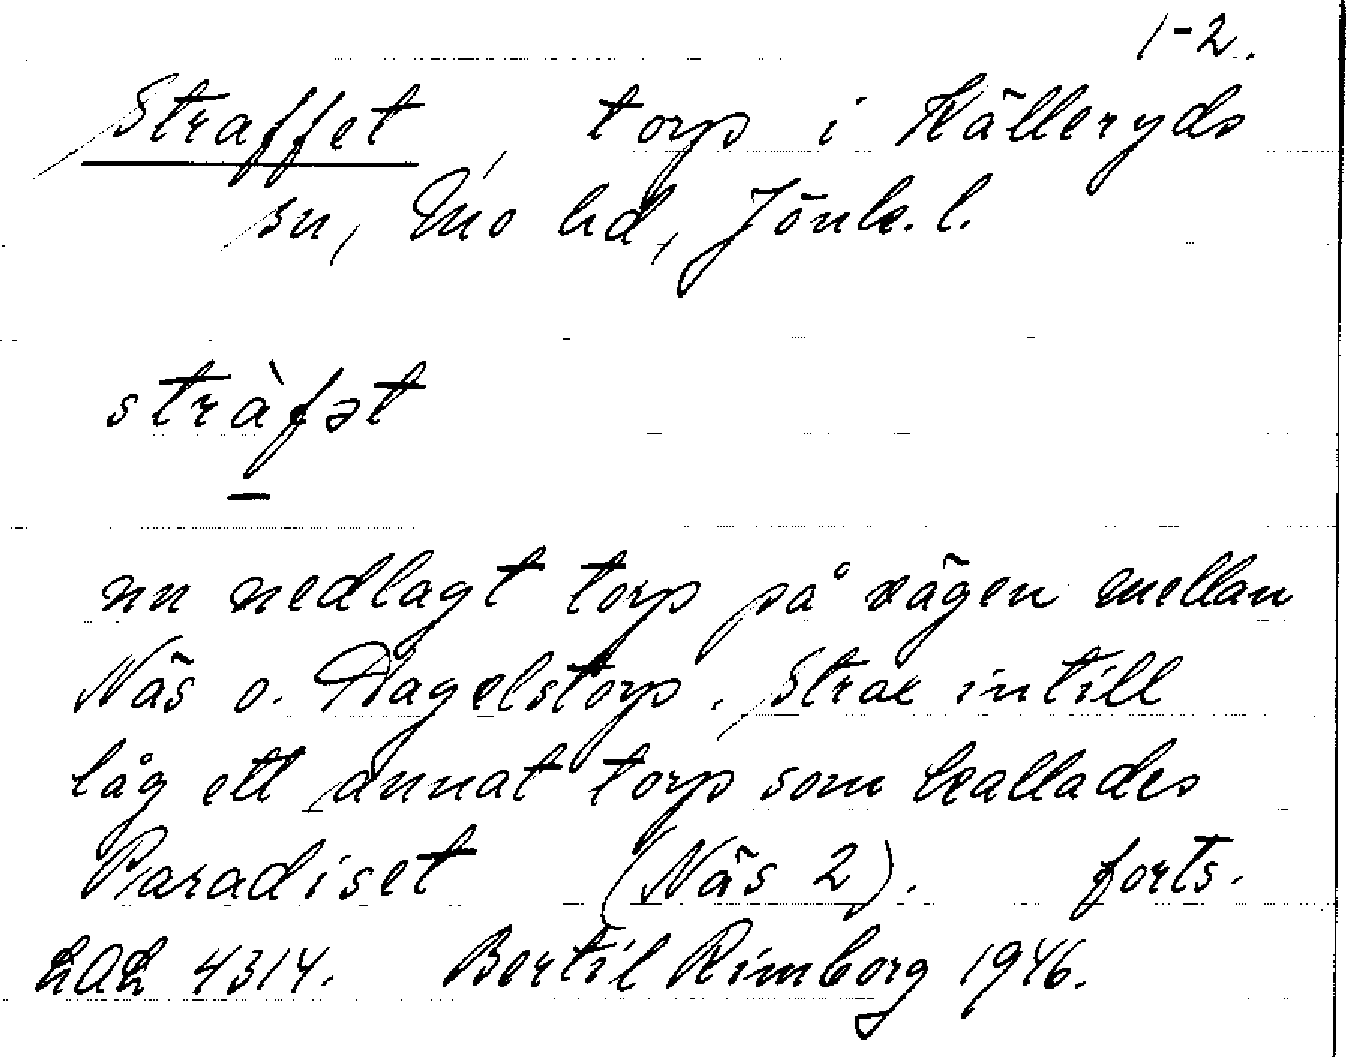 1-2.
Straffet, torp i Källeryds
sn, Mo hd, Jönk. l.
stràfət
nu nedlagt torp på vägen mellan
Näs o. Ragelstorp. Strax intill
låg ett annat torp som kallades
Paradiset (Näs 2). forts.
LAL 4314. Bertil Rimborg 1946.